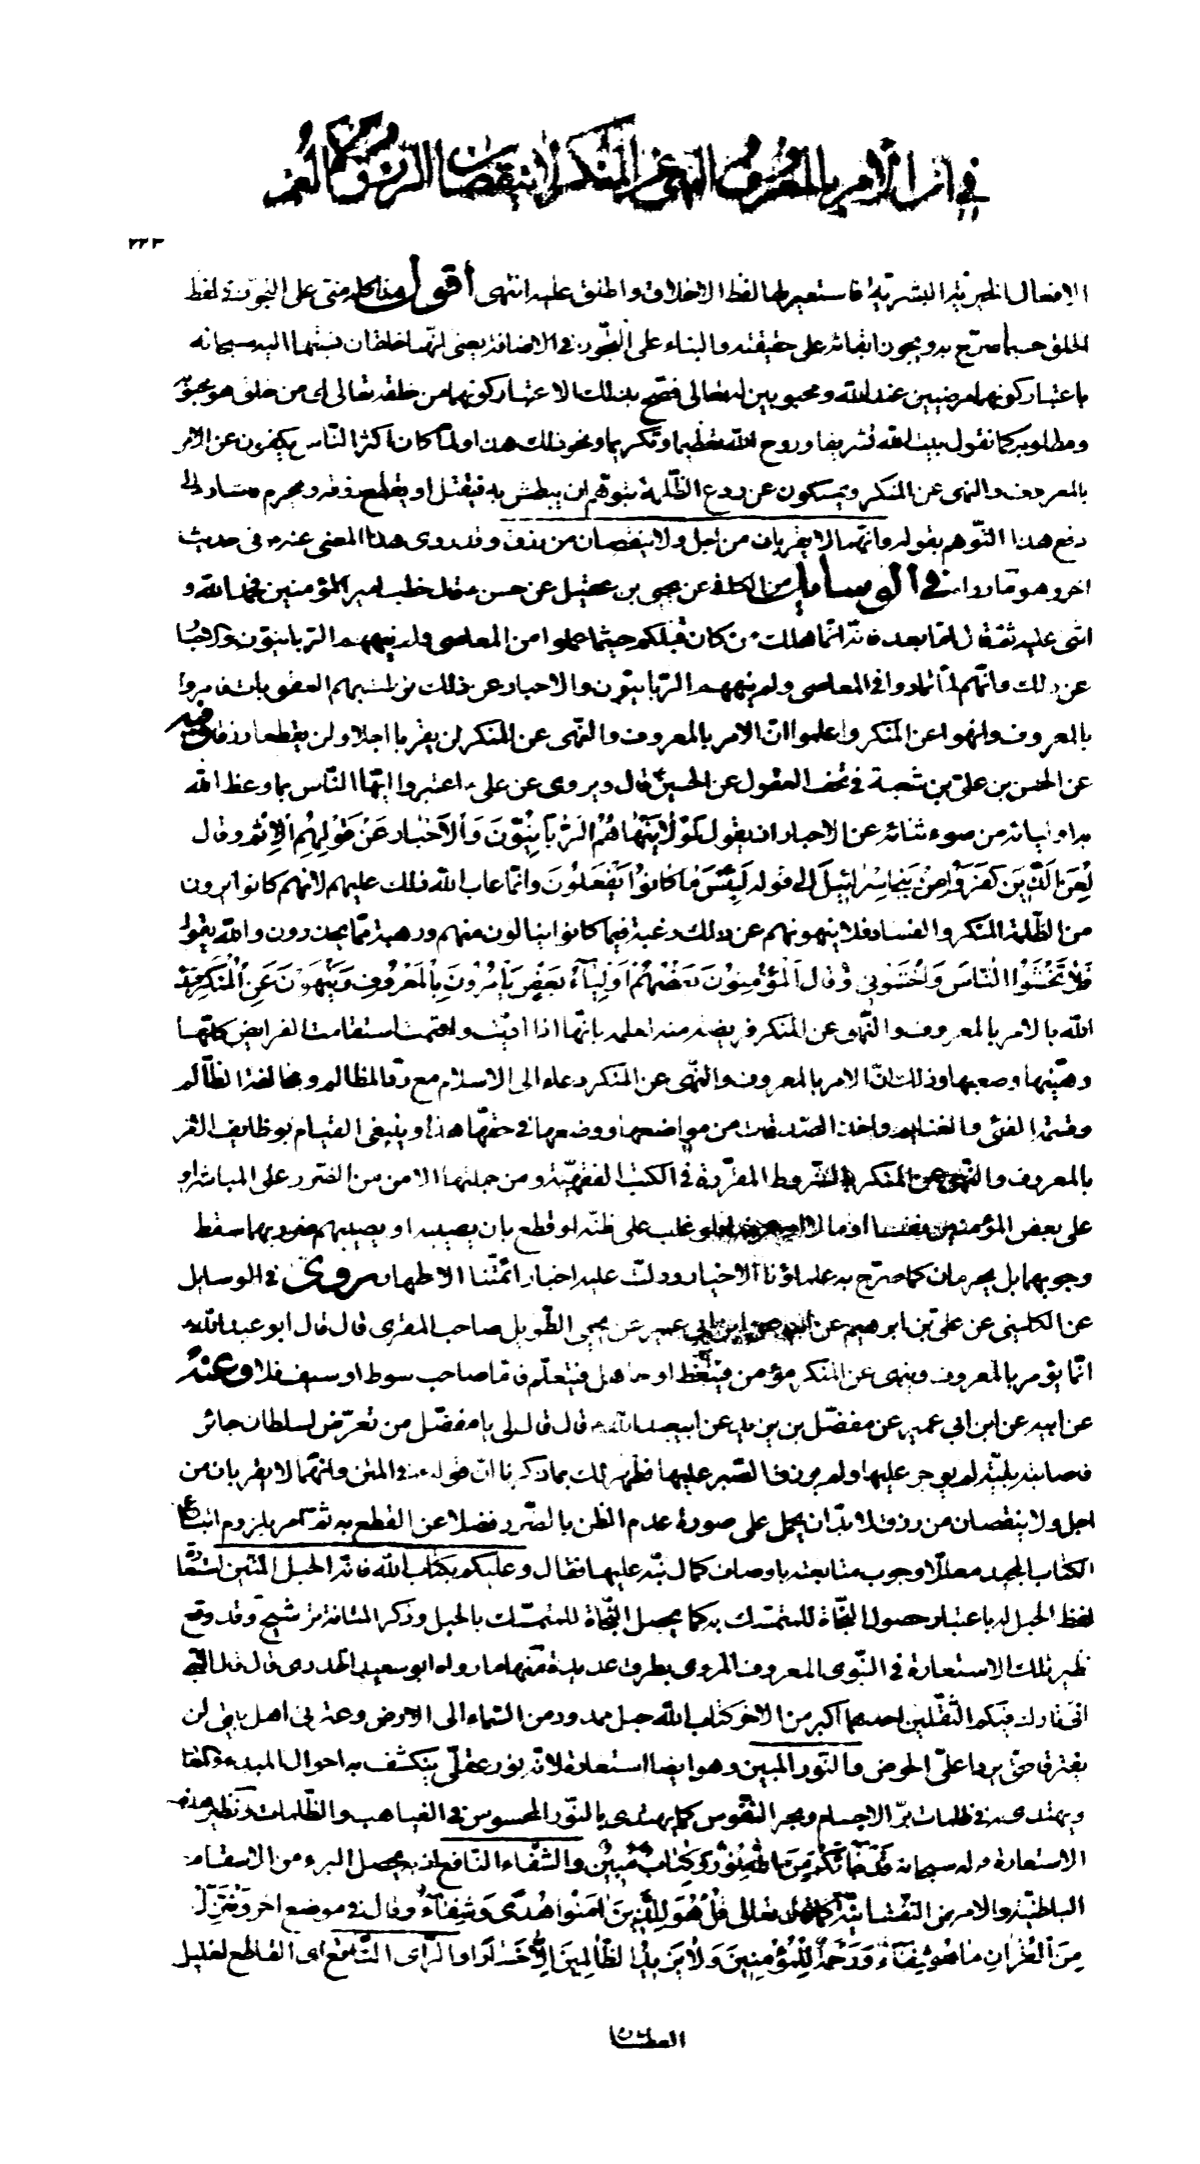 في ان الامر بالمعروف و النهى عن المنكر لا ينقصان الرزق و العمر
٢٢٣
الافعال الخيرية البشرية فاستعير لها لفظ الاخلاق و اطلق عليه انتهى أقول هذا كله مبنى على التجوز في لفظ
الخلق حسبما صرّح به و يجوز ابقائه على حقيقته و البناء على التجوز في الاضافة يعنى انّهما خلقان نسبتهما اليه سبحانه
باعتبار كونهما مرضيين عند الله و محبوبين له تعالى فصحّ بذلك الاعتبار كونهما من خلقه تعالى اى من خلق هو محبوبه
و مطلوبه كما نقول بيت الله تشريفا و روح الله تعظيما و تكريما و نحو ذلك هذا و لمّا كان اكثر النّاس يكفون عن الامر
بالمعروف و النهى عن المنكر و يمسكون عن ردع الظّلمة بتوهّم ان يبطش به فيقتل او يقطع رزقه و يحرم اشار الى
دفع هذا التّوهم بقوله و انّهما لا يقربان من اجل و لا ينقصان من رزق و قد روى هذا المعنى عنه في حديث
اخر و هو ما رواه في الوسايل من الكافى عن يحيى بن عقيل عن حسن قال خطب امير المؤمنين فحمد الله و
اثنى عليه ثمّ قال امّا بعد فانّه انّما هلك من كان قبلكم حيثما عملوا من المعاصى و لم ينههم الربّانيّون و الاحبار
عن ذلك و انّهم لمّا تمادوا في المعاصى و لم ينههم الربّانيّون و الاحبار عن ذلك نزلت بهم العقوبات فامروا
بالمعروف و انهوا عن المنكر و اعلموا انّ الامر بالمعروف و النّهى عن المنكر لن يقربا اجلا و لن يقطعا رزقا و فيه
عن الحسن بن علىّ بن شعبة في تحف العقول عن الحسين قال و يروى عن على اعتبروا ايّها النّاس بما وعظ الله
به اوليائه من سوء ثنائه على الاحبار اذ يقول لَوْلا يَنْهاهُمُ الرَّبّانِيُّونَ وَ الْأَحْبارُ عَنْ قَوْلِهِمُ الْإِثْمَ و قال
لُعِنَ الَّذِينَ كَفَرُوا مِنْ بَنِي إِسْرائِيلَ الى قوله لَبِئْسَ ما كانُوا يَفْعَلُونَ و انّما عاب الله ذلك عليهم لانّهم كانوا يرون
من الظّلمة المنكر و الفساد فلا ينهونهم عن ذلك رغبة فيما كانوا ينالون منهم و رهبة ممّا يحذرون و الله يقول
فَلا تَخْشَوُا النَّاسَ وَ اخْشَوْنِي و قال الْمُؤْمِنُونَ بَعْضُهُمْ أَوْلِياءُ بَعْضٍ يَأْمُرُونَ بِالْمَعْرُوفِ وَ يَنْهَوْنَ عَنِ الْمُنْكَرِ فبدء
الله بالامر بالمعروف و النّهى عن المنكر فريضة منه لعلمه بانّها اذا ادّيت و اقيمت استقامت الفرايض كلّها
هيّنها و صعبها و ذلك انّ الامر بالمعروف و النّهى عن المنكر دعاء الى الاسلام مع ردّ المظالم و مخالفة الظّالم
و قسمة الفئ و الغنائم و اخذ الصّدقات من مواضعها و وضعها في حقّها هذا و ينبغى القيام بوظايف الامر
بالمعروف و النّهى عن المنكر بالشّروط المقرّرة في الكتب الفقهيّة و من جملتها الامن من الضّرر على المباشر او
على بعض المؤمنين نفسا او مالا او عرضا فلو غلب على ظنّه او قطع بان يصيبه او يصيبهم ضرر بهما سقط
وجوبهما بل يحرمان كما صرّح به علماؤنا الاخيار و دلّت عليه اخبار ائمّتنا الاطهار روى في الوسايل
عن الكلينى عن علىّ بن ابرهيم عن ابيه عن ابن ابي عمير عن يحيى الطّويل صاحب المقرى قال قال ابو عبد الله
انّما يؤمر بالمعروف و ينهى عن المنكر مؤمن فيتّعظ او جاهل فيتعلّم فامّا صاحب سوط او سيف فلا و عنه
عن ابيه عن ابن ابي عمير عن مفضّل بن يزيد عن ابي عبد الله قال قال لى يا مفضّل من تعرّض لسلطان جائر
فاصابته بليّة لم يوجر عليها و لم يرزق الصّبر عليها فظهر لك بما ذكرنا انّ قوله في المتن و انّهما لا يقربان من
اجل و لا ينقصان من رزق لا بدّ ان يحمل على صورة عدم الظنّ بالضّرر فضلا عن القطع به ثمّ امر بلزوم اتباع
الكتاب المجيد معلّلا وجوب متابعته باوصاف كمال نبّه عليها فقال و عليكم بكتاب الله فانّه الحبل المتين استعارة
لفظ الحبل له باعتبار حصول النّجاة للمتمسّك به كما يحصل النّجاة للمتمسّك بالحبل و ذكر المتانة ترشيح و قد وقع
نظير تلك الاستعارة في النّبوى المعروف المروى بطرق عديدة منها ما رواه ابو سعيد الخدرى قال قال النّبي
انّي تارك فيكم الثّقلين احدهما اكبر من الاخر كتاب الله حبل ممدود من السّماء الى الارض و عترتى اهل بيتي لن
يفترقا حتّى يردا علىّ الحوض و النّور المبين و هو ايضا استعارة لانّه نور عقلىّ ينكشف به احوال المبدء و المعاد
و يهتدى به في ظلمات برّ الاجسام و بحر النّفوس كما يهتدى بالنّور المحسوس في الغياهب و الظّلمات و نظير هذه
الاستعارة قوله سبحانه قَدْ جاءَكُمْ مِنَ اللهِ نُورٌ وَ كِتابٌ مُبِينٌ و الشّفاء النّافع اذ به يحصل البرء من الاسقام
الباطنيّة و الامراض النّفسانيّة كما قال تعالى قُلْ هُوَ لِلَّذِينَ آمَنُوا هُدىً وَ شِفاءٌ و قال في موضع اخر وَ نُنَزِّلُ
مِنَ الْقُرْآنِ ما هُوَ شِفاءٌ وَ رَحْمَةٌ لِلْمُؤْمِنِينَ وَ لا يَزِيدُ الظّالِمِينَ إِلّا خَساراً و الرّى النّاقع اى القاطع لغليل
العطشان